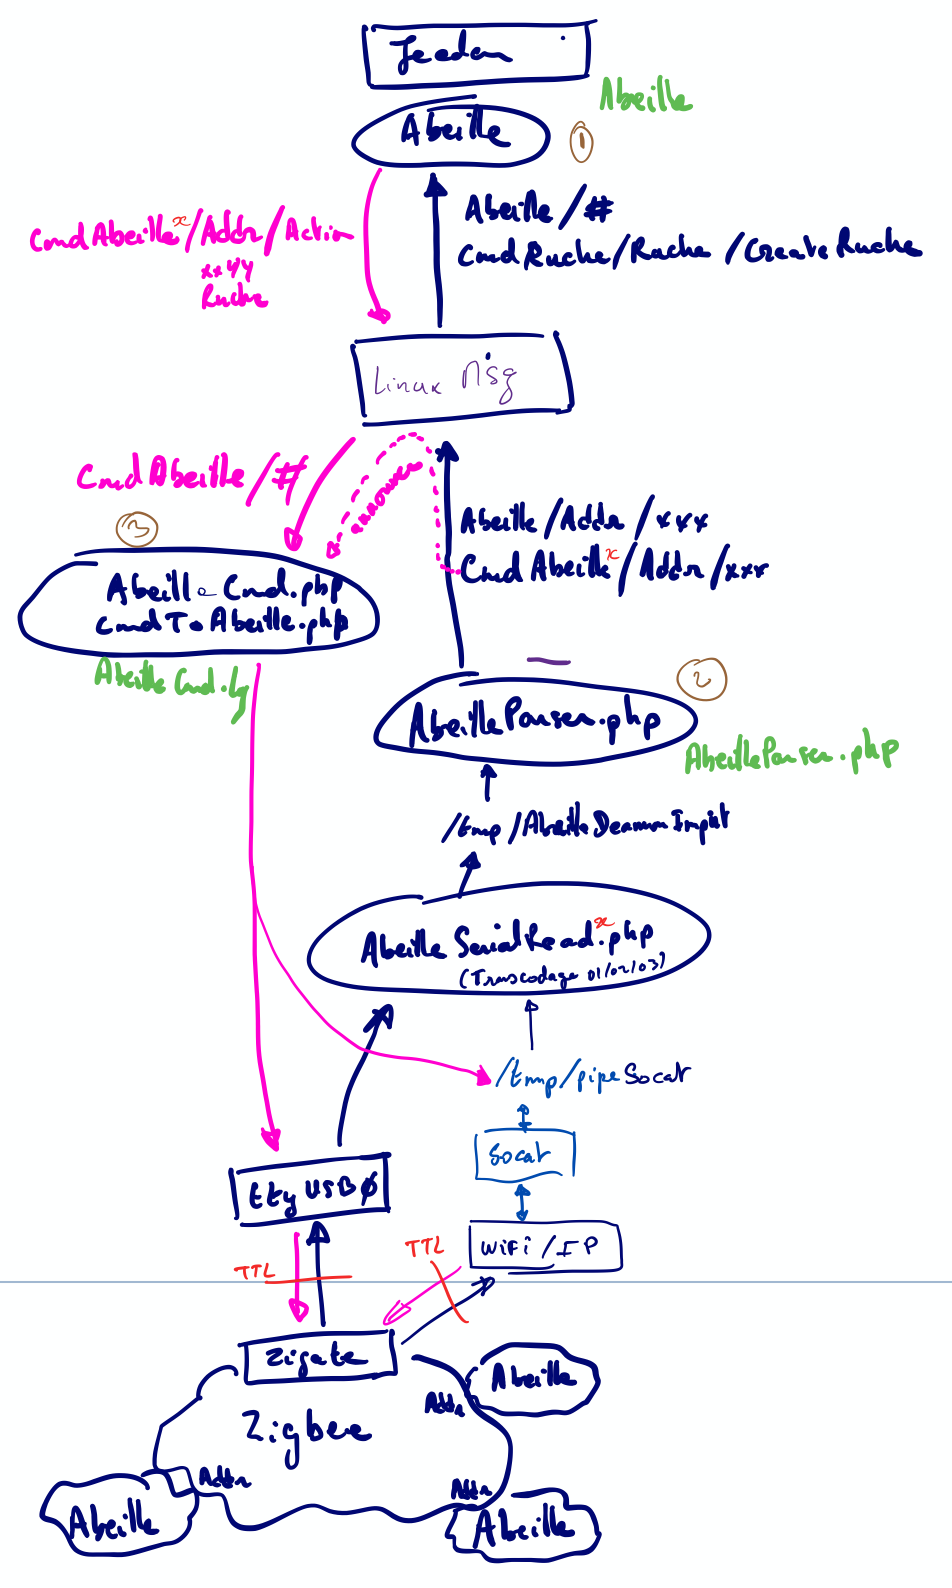 Jeedom
Abeille
Abeille
1
CmdAbeille x/Addr/Action
xxyy
Ruche
Abeille/#
CmdRuche/Ruche/CreateRuche
Linux Msg
CmdAbeille/#
annonces
3
Abeille/Addr/xxx
CmdAbeille x/Addr/xxx
AbeilleCmd.php
CmdToAbeille.php
AbeilleCmd.log
2
AbeilleParser.php
AbeilleParser.php
/tmp/AbeilleDeamonInput
AbeilleSerialRead x.php
(Transcodage 01/02/03)
/tmp/pipeSocat
Socat
ttyUSBØ
WiFi/IP
TTL
TTL
Zigate
Zigbee
Addr
Abeille
Addr
Abeille
Addr
Abeille